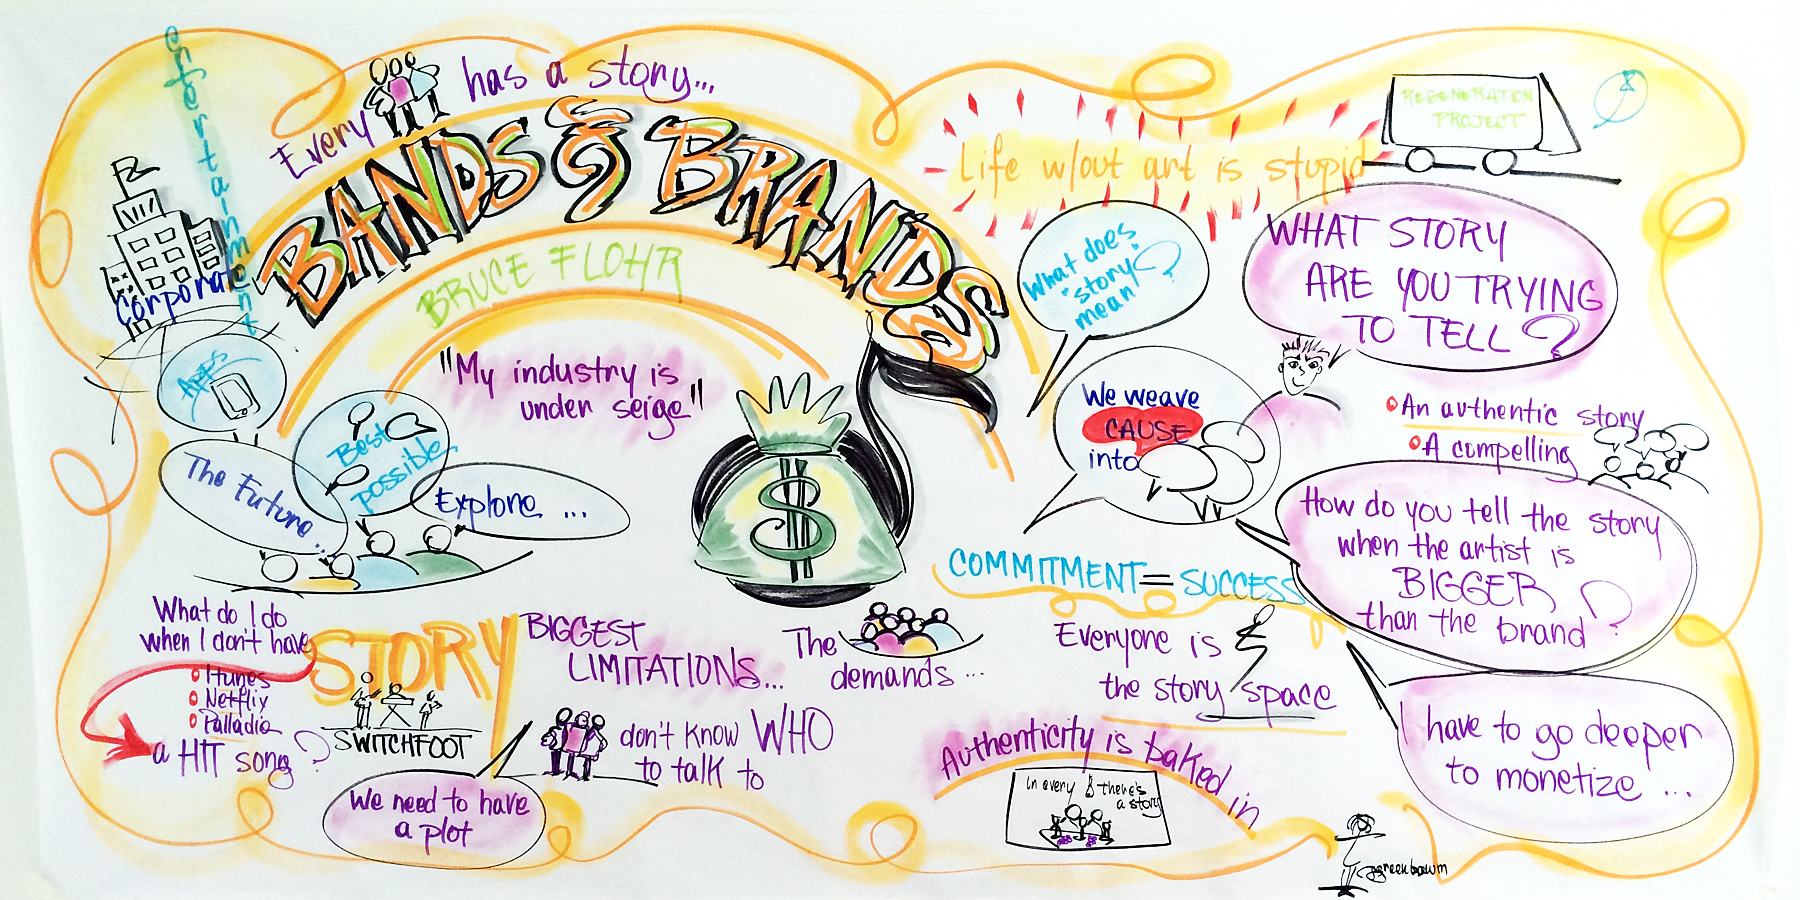 Entertainment
Corporate
Every has a story...
BANDS & BRANDS
BRUCE FLOHR
"My industry is
under seige"
$
APPS
The Future...
Best
possible
Explore ...
Life w/out art is stupid
REGENERATION
PROJECT
What does
"story"
mean?
WHAT STORY
ARE YOU TRYING
TO TELL?
We weave
CAUSE
into
An authentic story
A compelling
How do you tell the story
when the artist is
BIGGER
than the brand?
COMMITMENT = SUCCESS
What do I do
when I don't have
Itunes
Netflix
Palladia
a HIT song?
STORY
SWITCHFOOT
We need to have
a plot
BIGGEST
LIMITATIONS...
The
demands...
don't know WHO
to talk to
Everyone is
the story space
Authenticity is baked in
In every there's
a story
I have to go deeper
to monetize ...